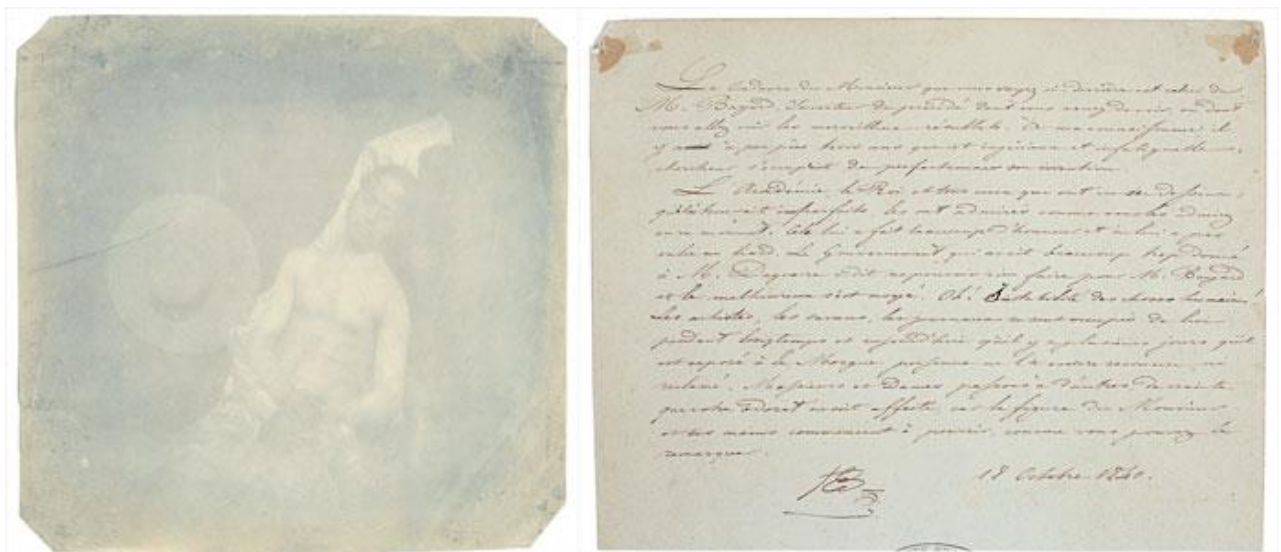 Le cadavre du Monsieur que vous voyez ci-derrière est celui de
M. Bayard, inventeur du procédé dont vous venez de voir, ou dont
vous allez voir les merveilleux résultats. à ma connaissance, il
y a à peu près trois ans que cet ingénieux et infatigable
chercheur s'occupait de perfectionner son invention.
L'Académie, le Roi et tous ceux qui ont vu ses dessins,
imparfaits, les ont admirés comme vous les admirez
en ce moment. Cela lui a fait beaucoup d'honneur et ne lui a pas
valu un liard. Le Gouvernement, qui avait beaucoup trop donné
à M. Daguerre a dit ne pouvoir rien faire pour M. Bayard
et le malheureux s'est noyé. Oh! Instabilité des choses humaines!
Les artistes, les savans, les journaux se sont occupés de lui
pendant longtemps et aujourd'hui qu'il y a plusieurs jours qu'il
est exposé à la Morgue, personne ne l'a encore reconnu, ni
réclamé. Messieurs et Dames, passons à d'autres, de crainte
que votre odorat ne soit affecté, car la figure du Monsieur
et ses mains commencent à pourrir, comme vous pouvez le
remarquer.
18 Octobre 1840.